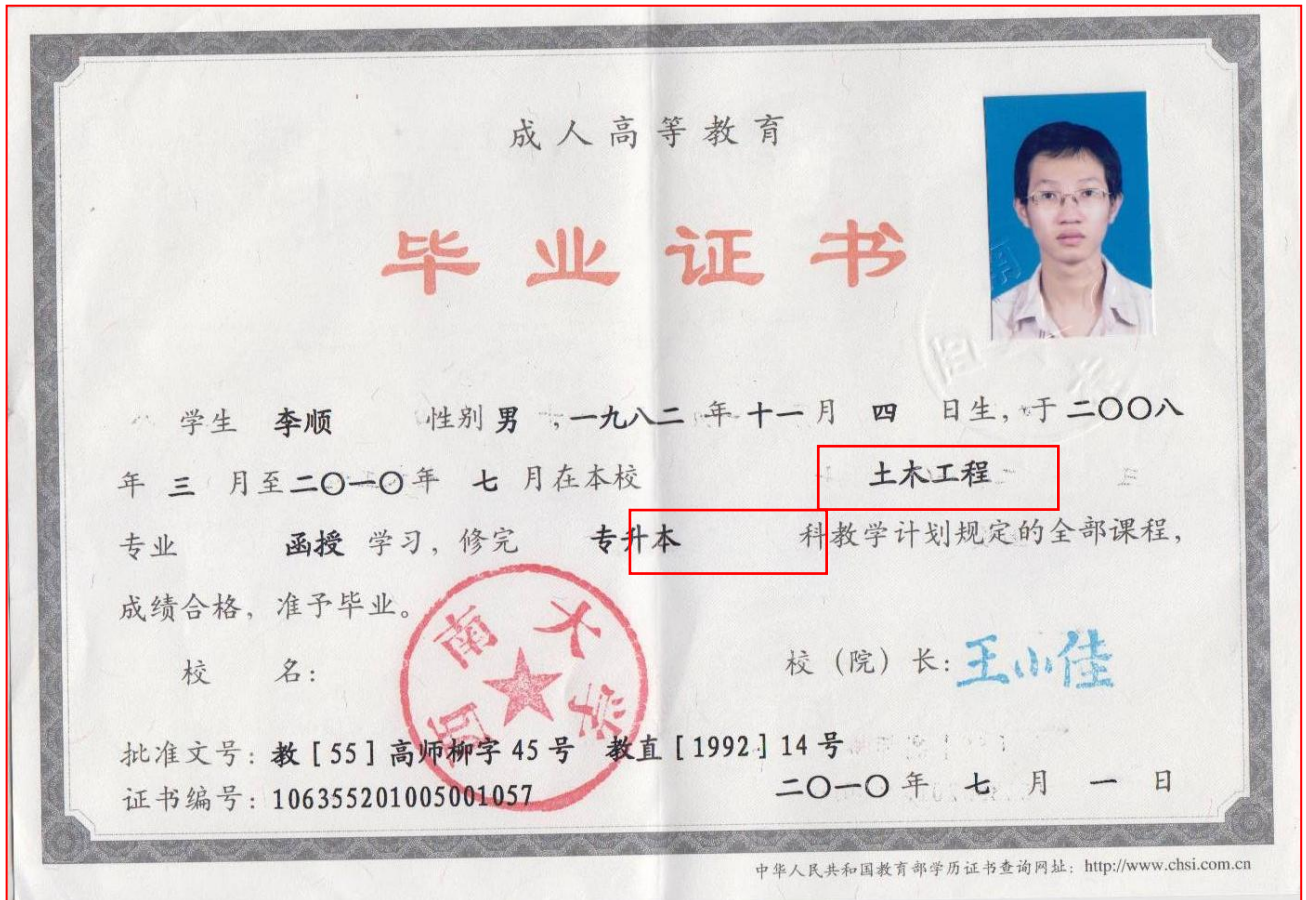 成人高等教育
毕业证书
学生 李顺 性别 男 ，一九八二 年 十一 月 四 日生，于 二〇〇八
年 三 月至 二〇一〇 年 七 月在本校 土木工程
专业 函授 学习，修完 专升本 科教学计划规定的全部课程，
成绩合格，准予毕业。
校 名：
西南大学
校（院）长：王小佳
批准文号：教［55］高师柳字 45 号 教直［1992］14 号
证书编号：106355201005001057
二〇一〇 年 七 月 一 日
中华人民共和国教育部学历证书查询网址：http://www.chsi.com.cn